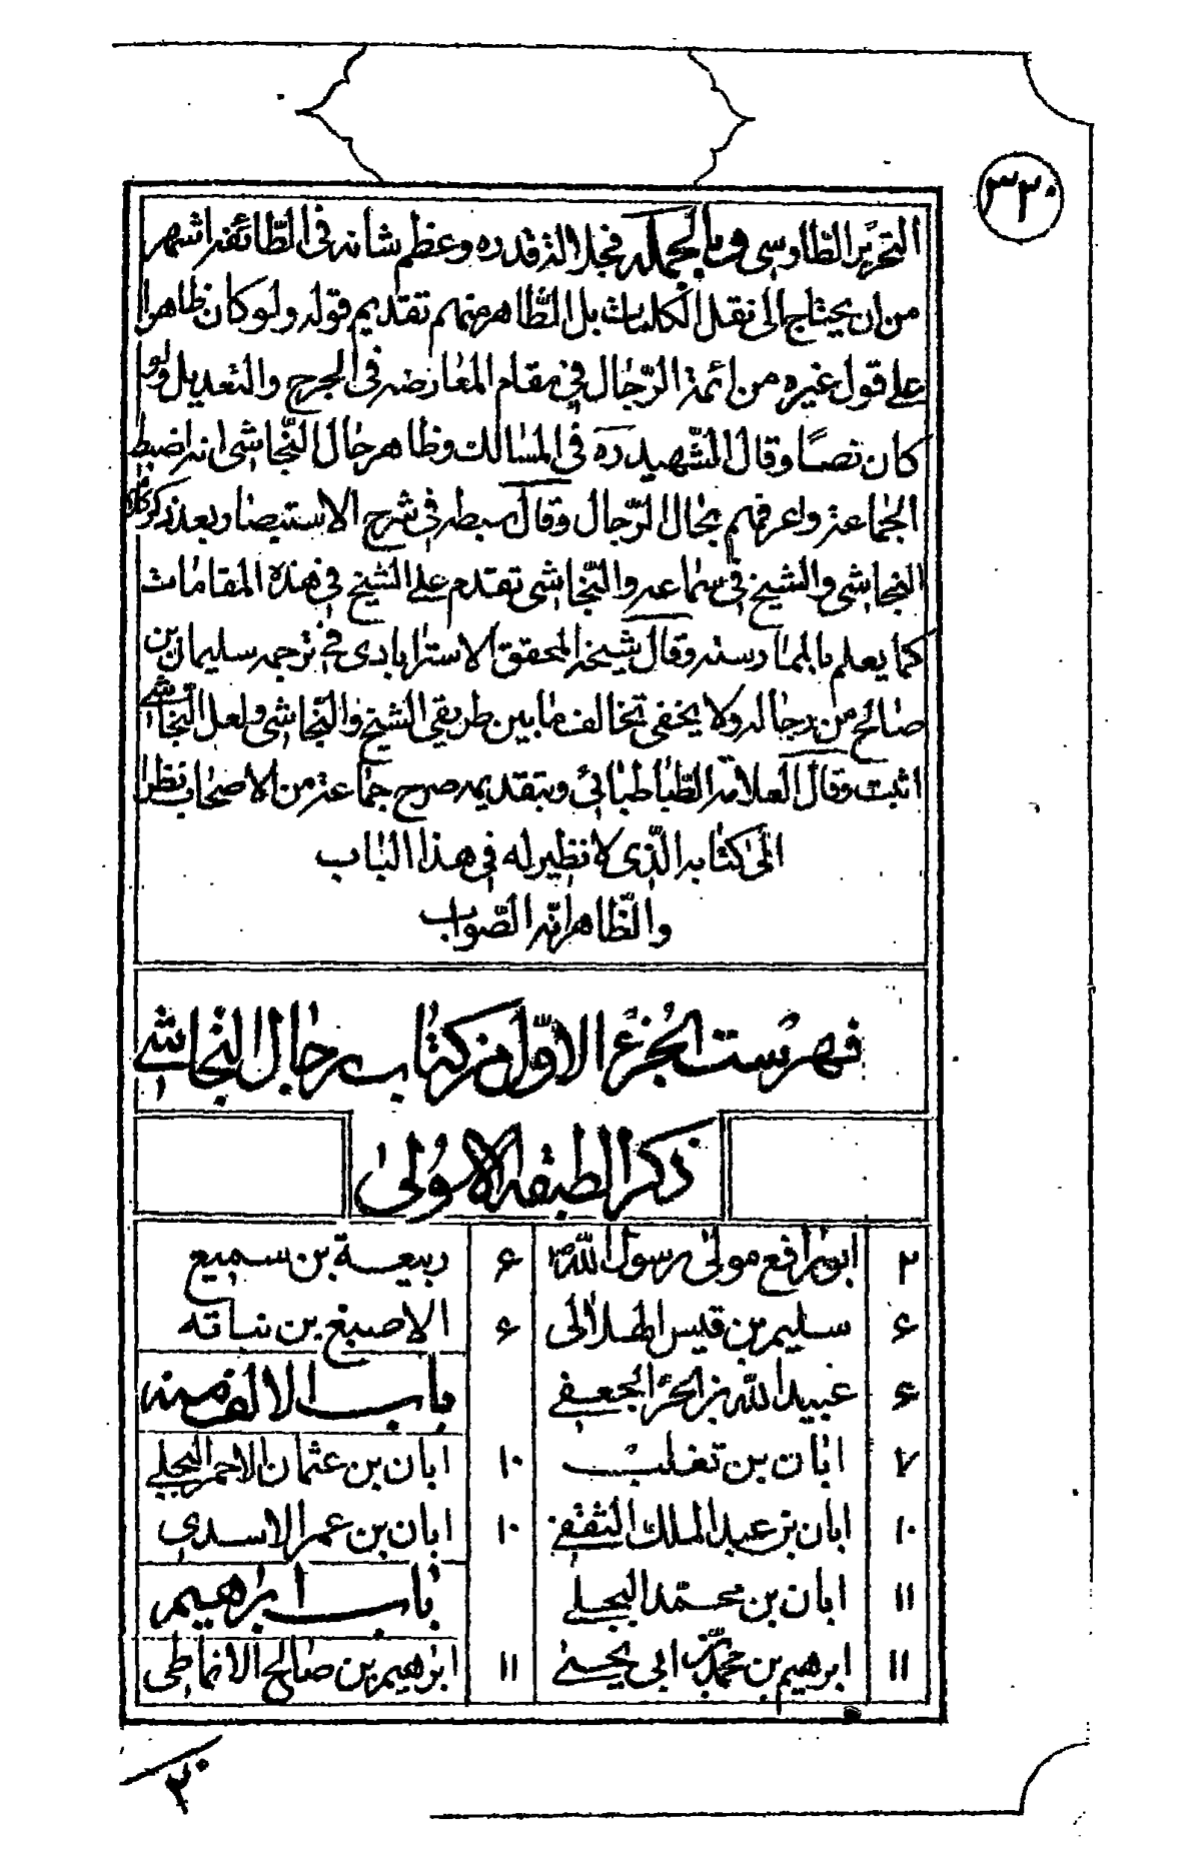 ٣٣٠
التحرير الطاوسي وبالجملة فجلالة قدره وعظم شانه في الطائفة اشهر
من ان يحتاج الى نقل الكلمات بل الظاهر منهم تقديم قوله ولو كان ظاهرا
على قول غيره من ائمة الرجال في مقام المعارضة في الجرح والتعديل ولو
كان نصًا وقال الشهيد ره في المسالك وظاهر حال النجاشي انه اضبط
الجماعة واعرفهم بحال الرجال وقال سبطه في شرح الاستبصار بعد ذكر كلام
النجاشي والشيخ في سماعة والنجاشي تقدم على الشيخ في هذه المقامات
كما يعلم بالممارسة وقال شيخه المحقق الاسترابادي في ترجمة سليمان بن
صالح من رجاله ولا يخفى تخالف ما بين طريقي الشيخ والنجاشي ولعل النجاشي
اثبت وقال العلامة الطباطبائي وبتقديمه صرح جماعة من الاصحاب نظرا
الى كتابه الذي لا نظير له في هذا الباب
والظاهر انه الصواب
فهرست الجزء الاول من كتاب رجال النجاشي
ذكر الطبقة الاولى
٢ ابو رافع مولى رسول الله ص ۶ ربيعة بن سميع
۶ سليم بن قيس الهلالى ۶ الاصبغ بن نباته
۶ عبيد الله بن الحر الجعفي باب الالف منه
٧ ابان بن تغلب ١٠ ابان بن عثمان الاحمر البجلي
١٠ ابان بن عبد الملك الثقفي ١٠ ابان بن عمر الاسدي
١١ ابان بن محمد البجلي باب ابرهيم
١١ ابرهيم بن محمد بن ابي يحيى ١١ ابرهيم بن صالح الانماطي
٢٠